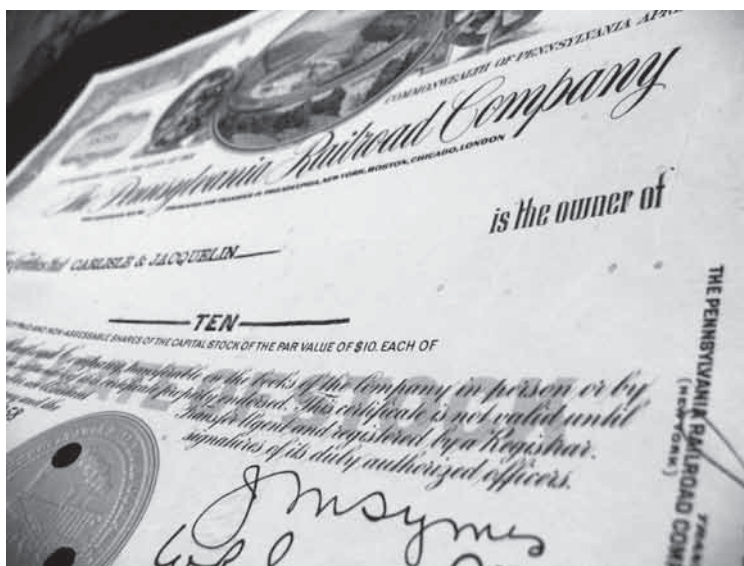 COMMONWEALTH OF PENNSYLVANIA APRI
The Pennsylvania Railroad Company
IN PHILADELPHIA, NEW YORK, BOSTON, CHICAGO, LONDON
is the owner of
CARLISLE & JACQUELIN
TEN
AND NON-ASSESSABLE SHARES OF THE CAPITAL STOCK OF THE PAR VALUE OF $10. EACH OF
transferable on the books of the Company in person or by
properly endorsed. This certificate is not valid until
Transfer Agent and registered by a Registrar.
signatures of its duly authorized officers.
J M Symes
THE PENNSYLVANIA RAILROAD COM
(NEW YORK)
TRAN